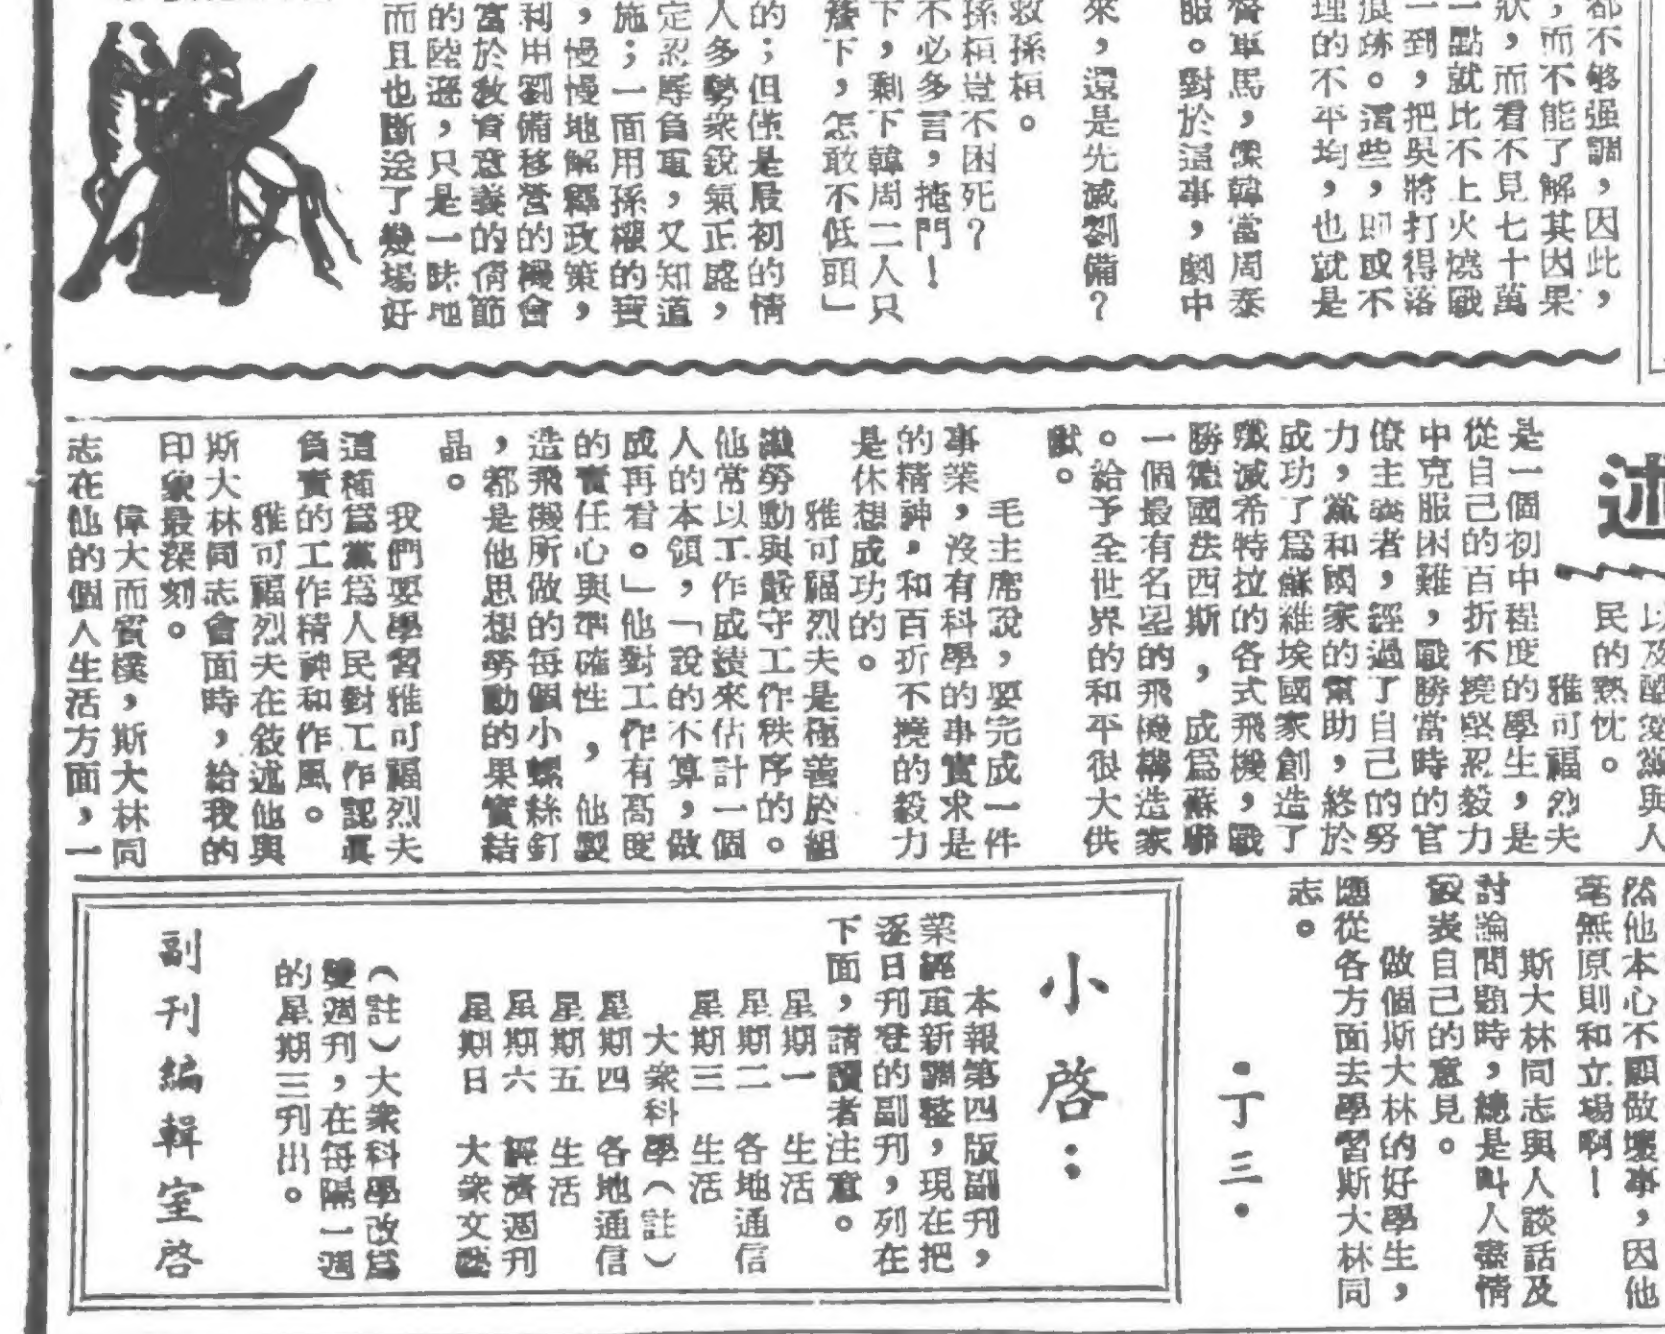 都不够强調，因此，
，而不能了解其因果
狀，而看不見七十萬
一點就比不上火燒戰
一到，把吳將打得落
痕跡。這些，即或不
理的不平均，也就是
督軍馬，儻韓當周泰
服。對於這事，劇中
來，還是先滅劉備？
救孫桓。
孫桓豈不困死？
不必多言，掩門！
下，剩下韓周二人只
詹下，怎敢不低頭」
的；但僅是最初的情
人多勢衆銳氣正盛，
定忍辱負重，又知道
施；一面用孫權的寶
，慢慢地解釋政策，
利用劉備移營的機會
富於教育意義的情節
的陸遜，只是一昧地
而且也斷送了幾場好
述
以及酷愛黨與人
民的熱忱。
雅可福烈夫
是一個初中程度的學生，是
從自己的百折不撓堅忍毅力
中克服困難，戰勝當時的官
僚主義者，經過了自己的努
力，黨和國家的幫助，終於
成功了爲蘇維埃國家創造了
殲滅希特拉的各式飛機，戰
勝德國法西斯，成爲蘇聯
一個最有名望的飛機構造家
。給予全世界的和平很大供
獻。
毛主席說，要完成一件
事業，沒有科學的事實求是
的精神，和百折不撓的毅力
是休想成功的。
雅可福烈夫是極善於組
織勞動與嚴守工作秩序的。
他常以工作成績來估計一個
人的本領，「說的不算，做
成再看。」他對工作有高度
的責任心與準確性，他製
造飛機所做的每個小螺絲釘
，都是他思想勞動的果實結
晶。
我們要學習雅可福烈夫
這種爲黨爲人民對工作認眞
負責的工作精神和作風。
雅可福烈夫在敘述他與
斯大林同志會面時，給我的
印象最深刻。
偉大而實樸，斯大林同
志在他的個人生活方面，一
然他本心不願做壞事，因他
毫無原則和立場啊！
斯大林同志與人談話及
討論問題時，總是叫人盡情
發表自己的意見。
做個斯大林的好學生，
應從各方面去學習斯大林同
志。
·丁三·
小啓：
本報第四版副刊，
業經重新調整，現在把
逐日刊登的副刊，列在
下面，請讀者注意。
星期一 生活
星期二 各地通信
星期三 生活
大衆科學（註）
星期四 各地通信
星期五 生活
星期六 經濟週刊
星期日 大衆文藝
（註）大衆科學改爲
雙週刊，在每隔一週
的星期三刊出。
副刊編輯室啓